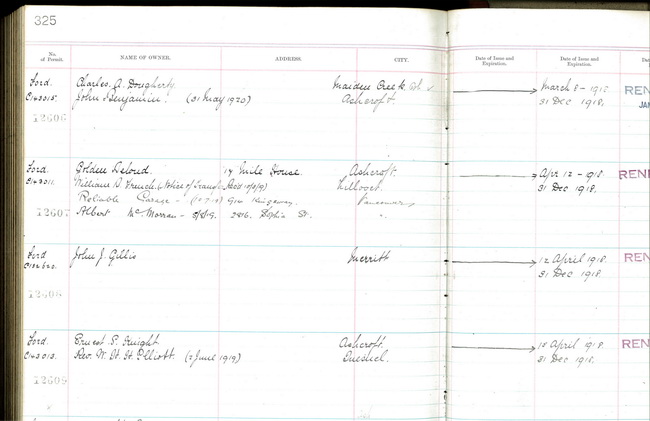 325
No. of Permit. NAME OF OWNER. ADDRESS. CITY. Date of Issue and Expiration. Date of Issue and Expiration. Dat
Ford Charles A. Dougherty Maiden Creek March 8 - 1918 REN
C143015. John Benjamin (31 May 1920) Ashcroft. 31 Dec 1918. JAN
12606
Ford. Golden 17 Mile House Ashcroft. Apr 12 - 1918 RENE
William D. French (Notice of Transfer Lillooet. 31 Dec 1918.
Reliable Garage - Kingsway. Vancouver
12607 Albert McMorran - 5/8/19. 2816. Sophia St. "
Ford John J. Gillis Merritt 12 April 1918 REN
31 Dec 1918.
12608
Ford. Ernest S. Knight Ashcroft. April 1918 REN
C143013. Rev. Elliott (2 June 1919) Quesnel. 31 Dec 1918.
12609